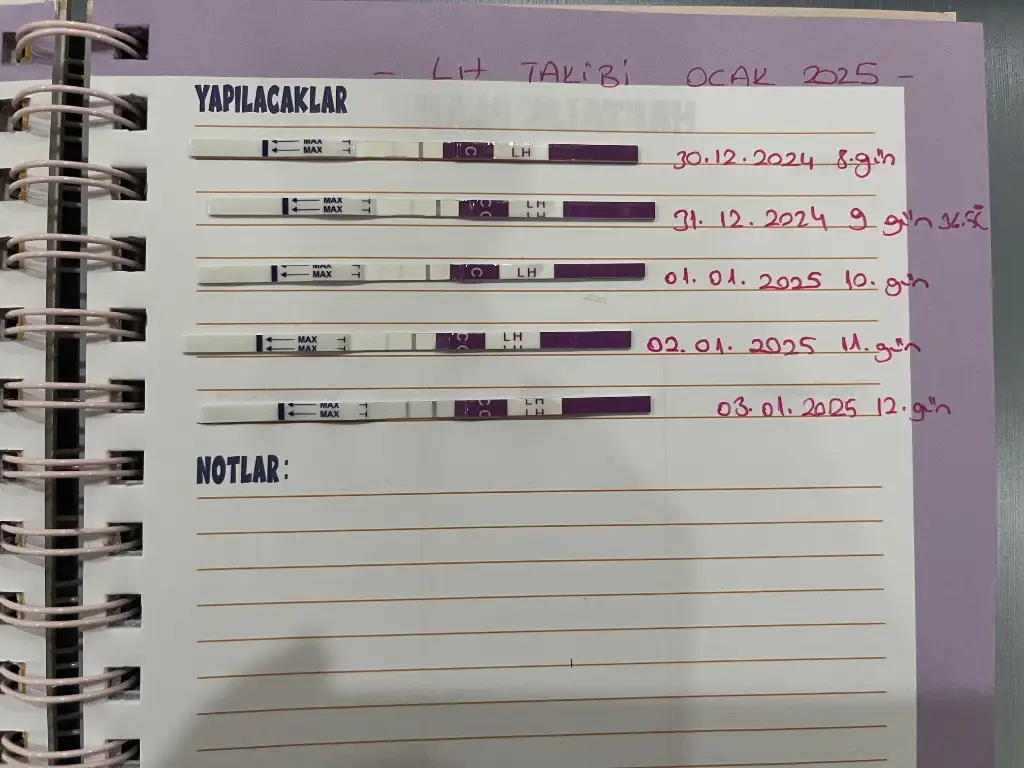 - LH TAKİBİ OCAK 2025 -
YAPILACAKLAR
MAX MAX T C LH 30.12.2024 8.gün
MAX MAX T C C LH LH 31.12.2024 9 gün 36.5C
MAX T C LH 01.01.2025 10.gün
MAX MAX T C C LH LH 02.01.2025 11.gün
MAX MAX T C C LH LH 03.01.2025 12.gün
NOTLAR: